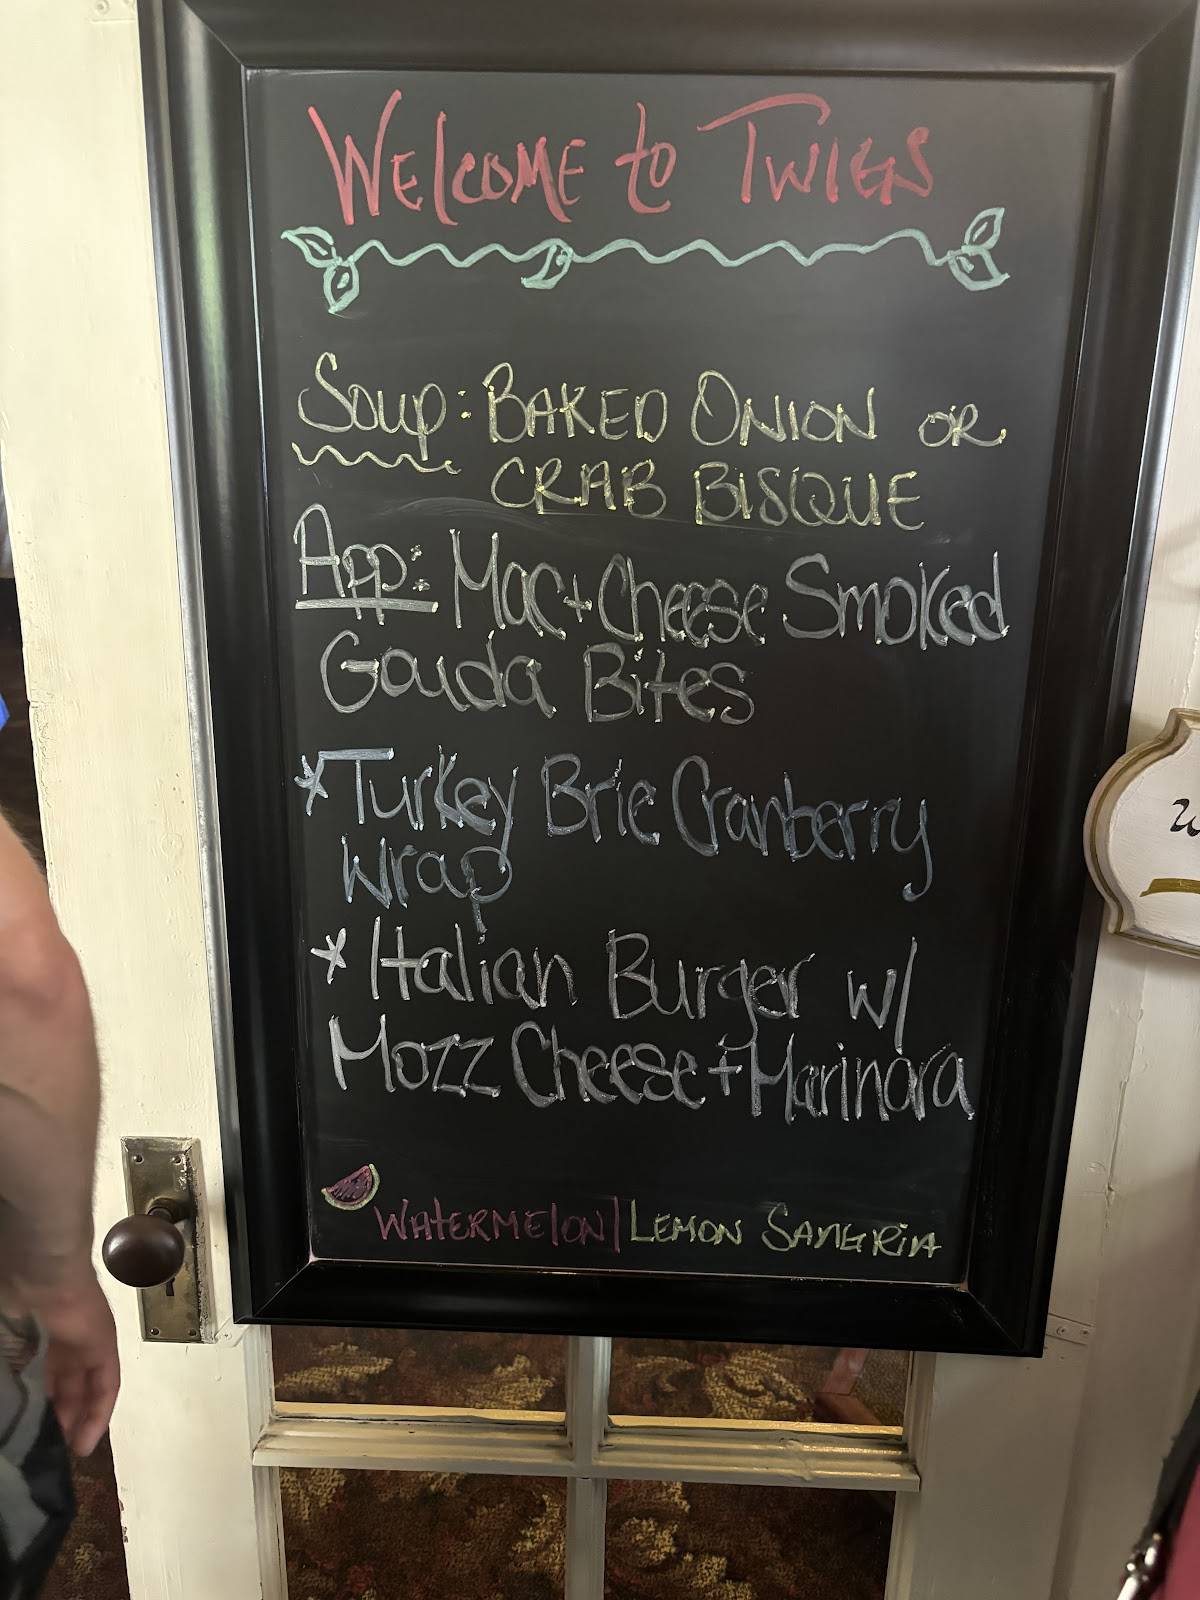 Welcome to Twigs
Soup: Baked Onion or
Crab Bisque
App: Mac + Cheese Smoked
Gouda Bites
* Turkey Brie Cranberry
Wrap
* Italian Burger w/
Mozz Cheese + Marinara
Watermelon | Lemon Sangria